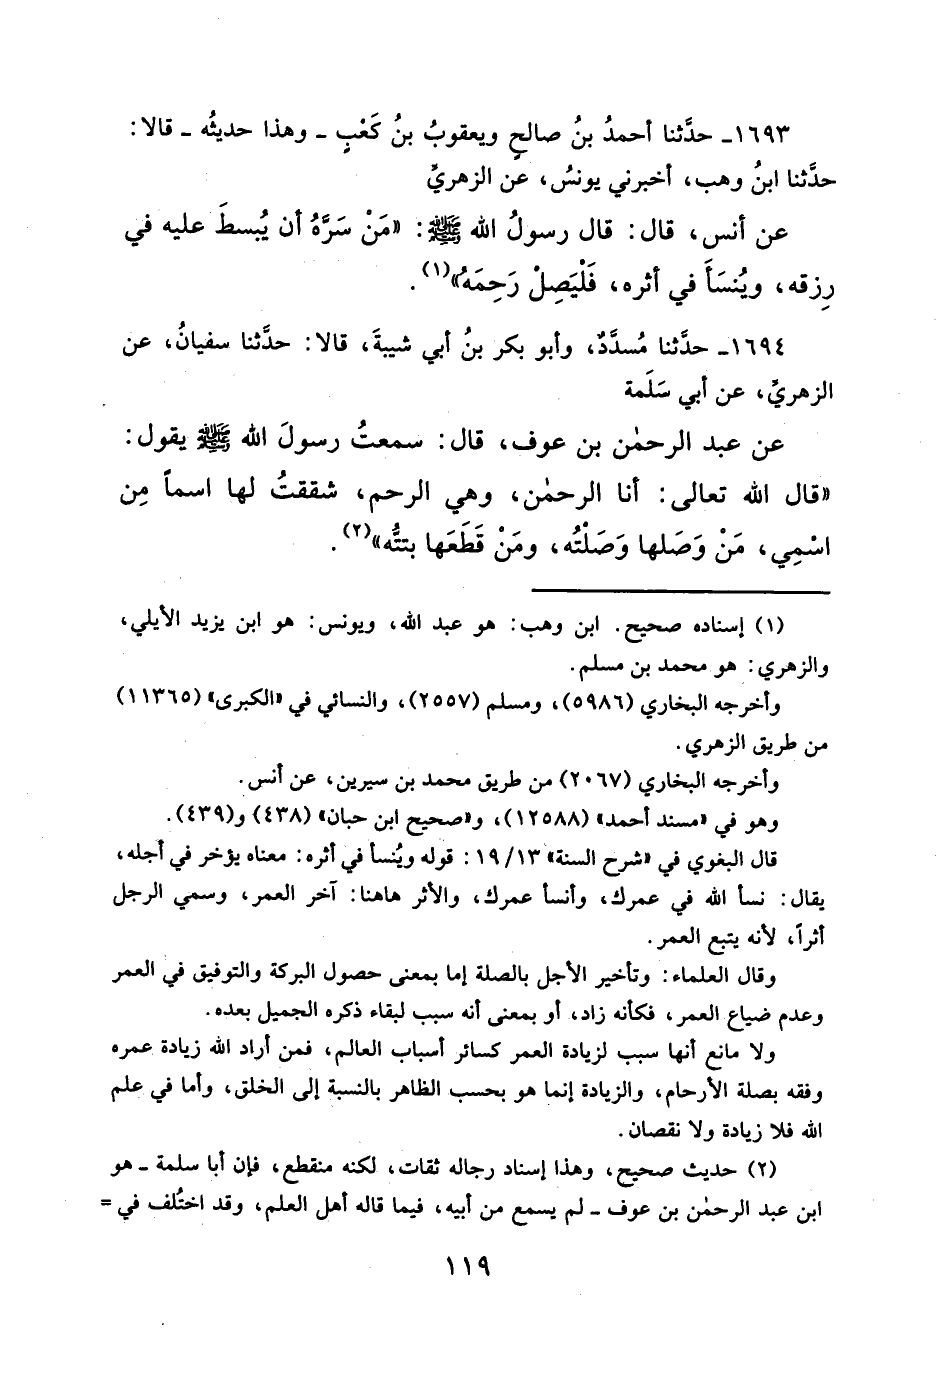 ١٦٩٣ـ حدَّثنا أحمدُ بنُ صالحٍ ويعقوبُ بنُ كَعْبٍ ـ وهذا حديثُه ـ قالا:
حدَّثنا ابنُ وهب، أخبرني يونسُ، عن الزهريِّ
عن أنس، قال: قال رسولُ الله ﷺ: «مَنْ سَرَّهُ أن يُبسطَ عليه في
رِزقه، ويُنسَأَ في أثره، فَلْيَصِلْ رَحِمَهُ»(١).
١٦٩٤ـ حدَّثنا مُسدَّدٌ، وأبو بكر بنُ أبي شيبةَ، قالا: حدَّثنا سفيانُ، عن
الزهريِّ، عن أبي سَلَمة
عن عبد الرحمٰن بن عوف، قال: سمعتُ رسولَ الله ﷺ يقول:
«قال الله تعالى: أنا الرحمٰن، وهي الرحم، شققتُ لها اسماً مِن
اسْمِي، مَنْ وَصَلها وَصَلْتُه، ومَنْ قَطَعَها بتتُّه»(٢).
(١) إسناده صحيح. ابن وهب: هو عبد الله، ويونس: هو ابن يزيد الأيلي،
والزهري: هو محمد بن مسلم.
وأخرجه البخاري (٥٩٨٦)، ومسلم (٢٥٥٧)، والنسائي في «الكبرى» (١١٣٦٥)
من طريق الزهري.
وأخرجه البخاري (٢٠٦٧) من طريق محمد بن سيرين، عن أنس.
وهو في «مسند أحمد» (١٢٥٨٨)، و«صحيح ابن حبان» (٤٣٨) و(٤٣٩).
قال البغوي في «شرح السنة» ١٩/١٣: قوله ويُنسأ في أثره: معناه يؤخر في أجله،
يقال: نسأ الله في عمرك، وأنسأ عمرك، والأثر هاهنا: آخر العمر، وسمي الرجل
أثراً، لأنه يتبع العمر.
وقال العلماء: وتأخير الأجل بالصلة إما بمعنى حصول البركة والتوفيق في العمر
وعدم ضياع العمر، فكأنه زاد، أو بمعنى أنه سبب لبقاء ذكره الجميل بعده.
ولا مانع أنها سبب لزيادة العمر كسائر أسباب العالم، فمن أراد الله زيادة عمره
وفقه بصلة الأرحام، والزيادة إنما هو بحسب الظاهر بالنسبة إلى الخلق، وأما في علم
الله فلا زيادة ولا نقصان.
(٢) حديث صحيح، وهذا إسناد رجاله ثقات، لكنه منقطع، فإن أبا سلمة ـ هو
ابن عبد الرحمٰن بن عوف ـ لم يسمع من أبيه، فيما قاله أهل العلم، وقد اختُلف في =
١١٩